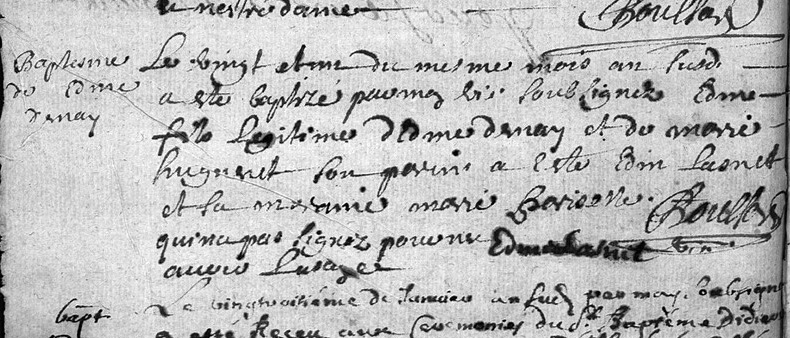 nostre dame
Baptesme de Edme denay
Le vingt et un du mesme mois an susd.
a esté baptizé par moy soubsignez Edme
fils Legitime d'Edme denay et de marie
huguenet son parin a esté Edm Lasnet
et sa maraine marie
qui n'a pas signez pour ne
avoir Lusage
Edme Lasnet
bapt
Le vingtroisième de Janvier an susd par moy soubsigné
a esté Receu aux Ceremonies du St Baptême Didier